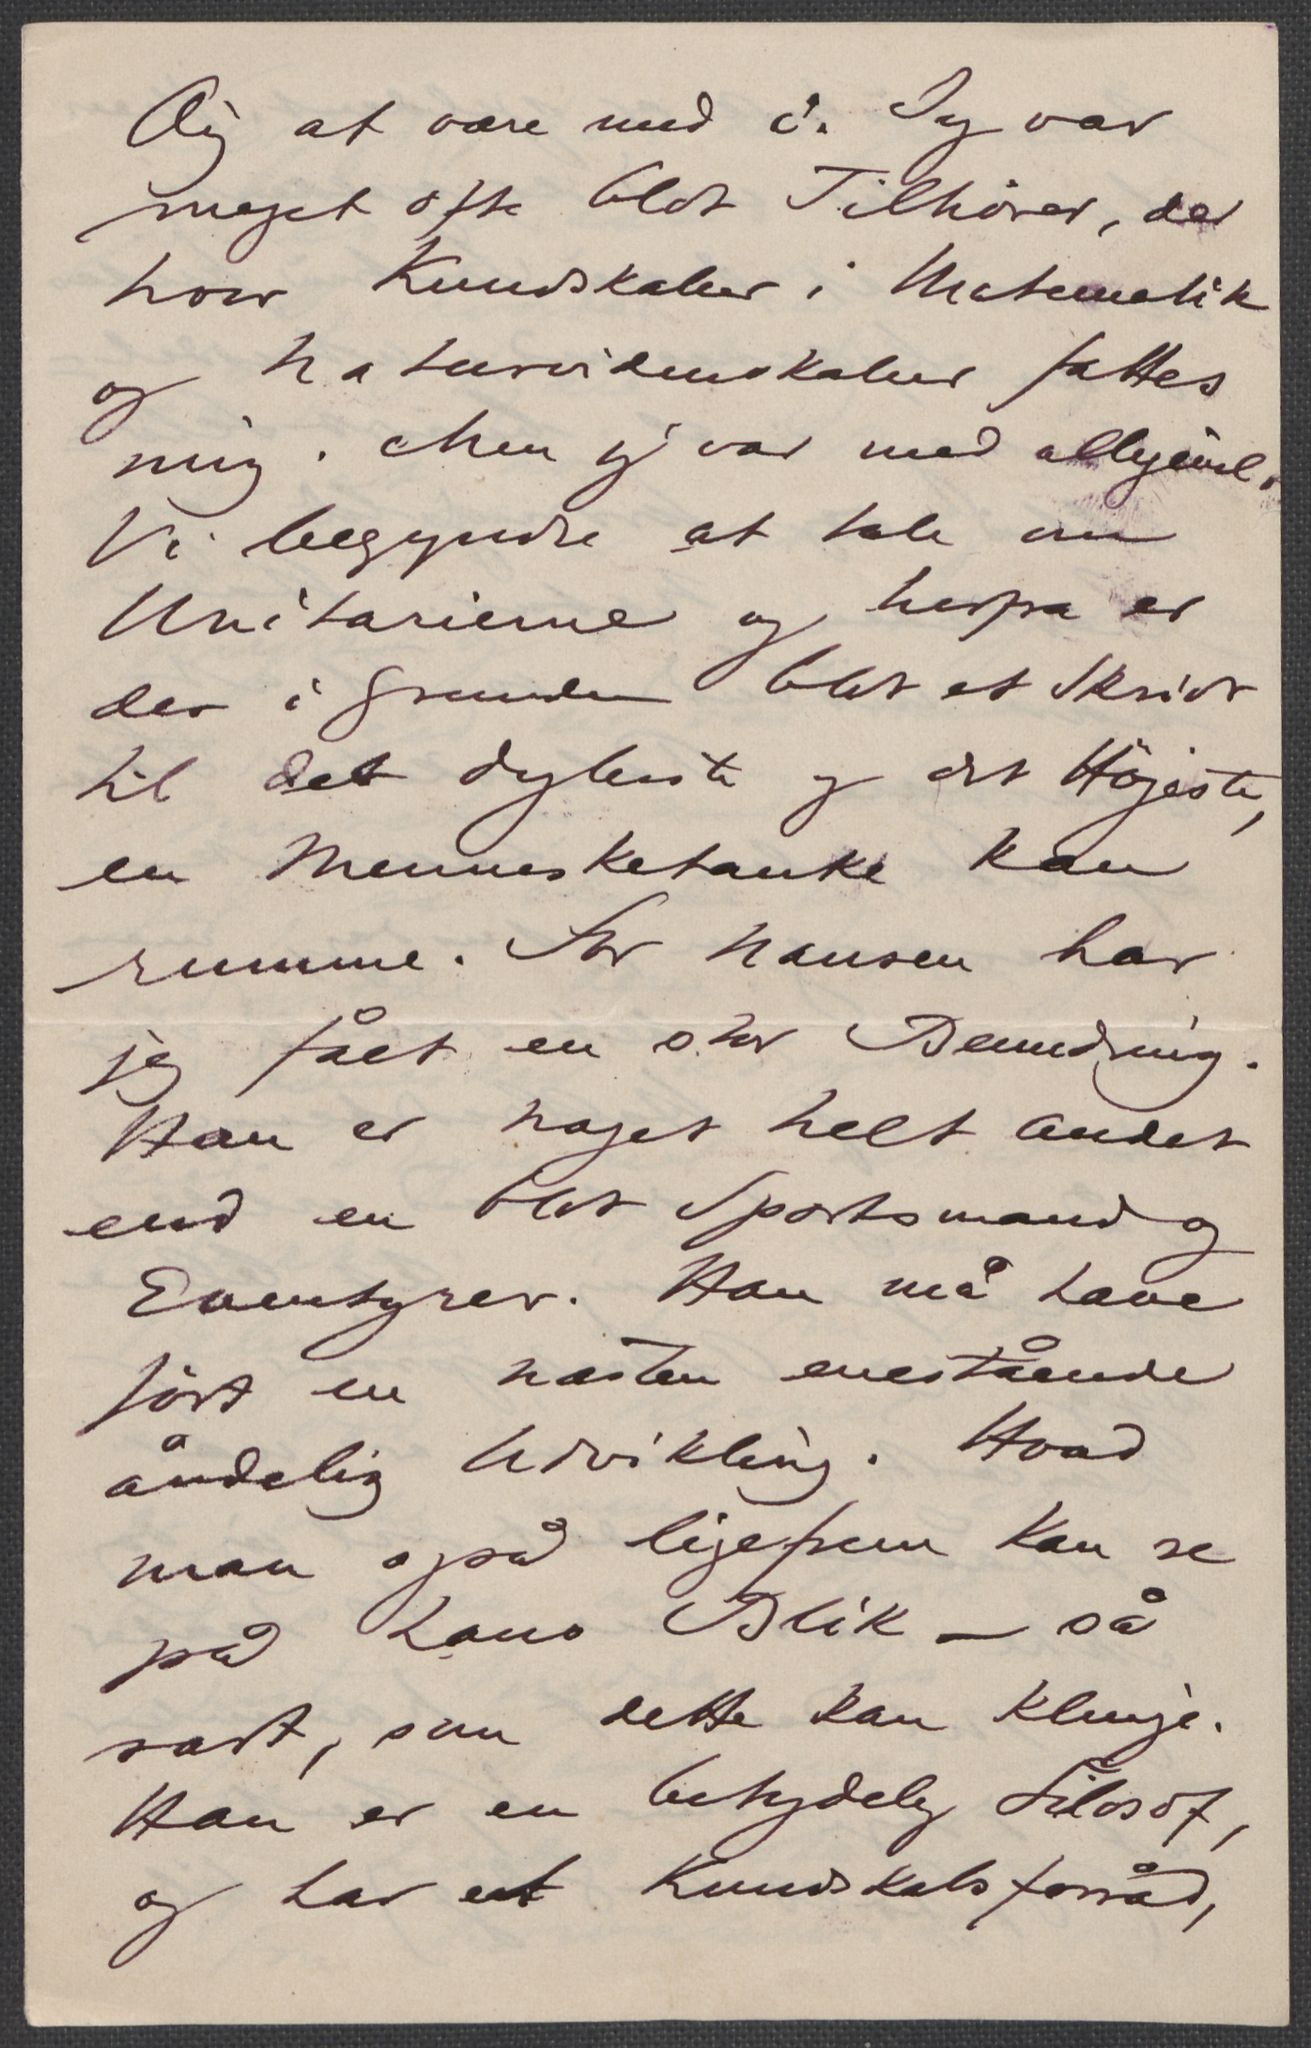 Dig at være med i. Jeg var
meget ofte blot Tilhører, der
hvor Kundskaber i Matematik
og Naturvidenskaber fattes
mig. Men jeg var med alligevel.
Vi begyndte at tale om
Unitarierne og herfra er
der i Grunden blot et Skridt
til det dybeste og det Höjeste,
en Mennesketanke kan
rumme. For Nansen har
jeg fået en stor Beundring.
Han er noget helt andet
end en blot Sportsmand og
Eventyrer. Han må have
ført en næsten enestående
åndelig Udvikling. Hvad
man også ligefrem kan se
på hans Blik – så
rart, som dette kan klinge.
Han er en betydelig Filosof,
og har et Kundskabsforråd,